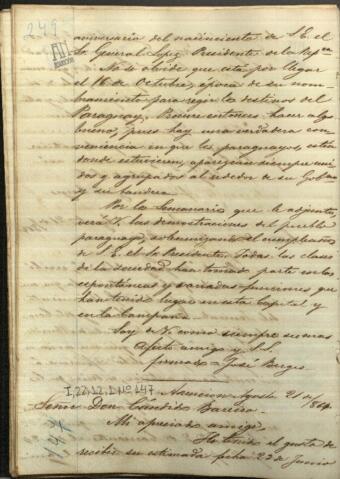 249
aniversario del nacimiento de S. E. el
Sor General Lopez, Presidente de la Repca
No se olvide que está por llegar
el 16 de Octubre, época de su nom-
bramiento para regir los destinos del
Paraguay. Procure entonces hacer algo
bueno, pues hay una verdadera con-
veniencia en que los paraguayos, estén
donde estuviesen, aparezcan siempre uni-
dos y agrupados al rededor de su Gobno
y su bandera.
Por los Semanarios que le adjunto,
verá V. las demostraciones del pueblo
paraguayo, solemnizando el cumpleaños
de S. E. el Sor Presidente. Todas las clases
de la sociedad han tomado parte en las
espontáneas y variadas funciones que
han tenido lugar en esta Capital y
en la Campaña.
Soy de V. como siempre su mas
Afecto amigo y S. S.
firmado José Berges
I,22,12,1 Nº 147
Asuncion Agosto 21 de 1864
147
Señor Don Candido Bareiro.
Mi apreciado amigo.
He tenido el gusto de
recibir su estimada fecha 23 de Junio